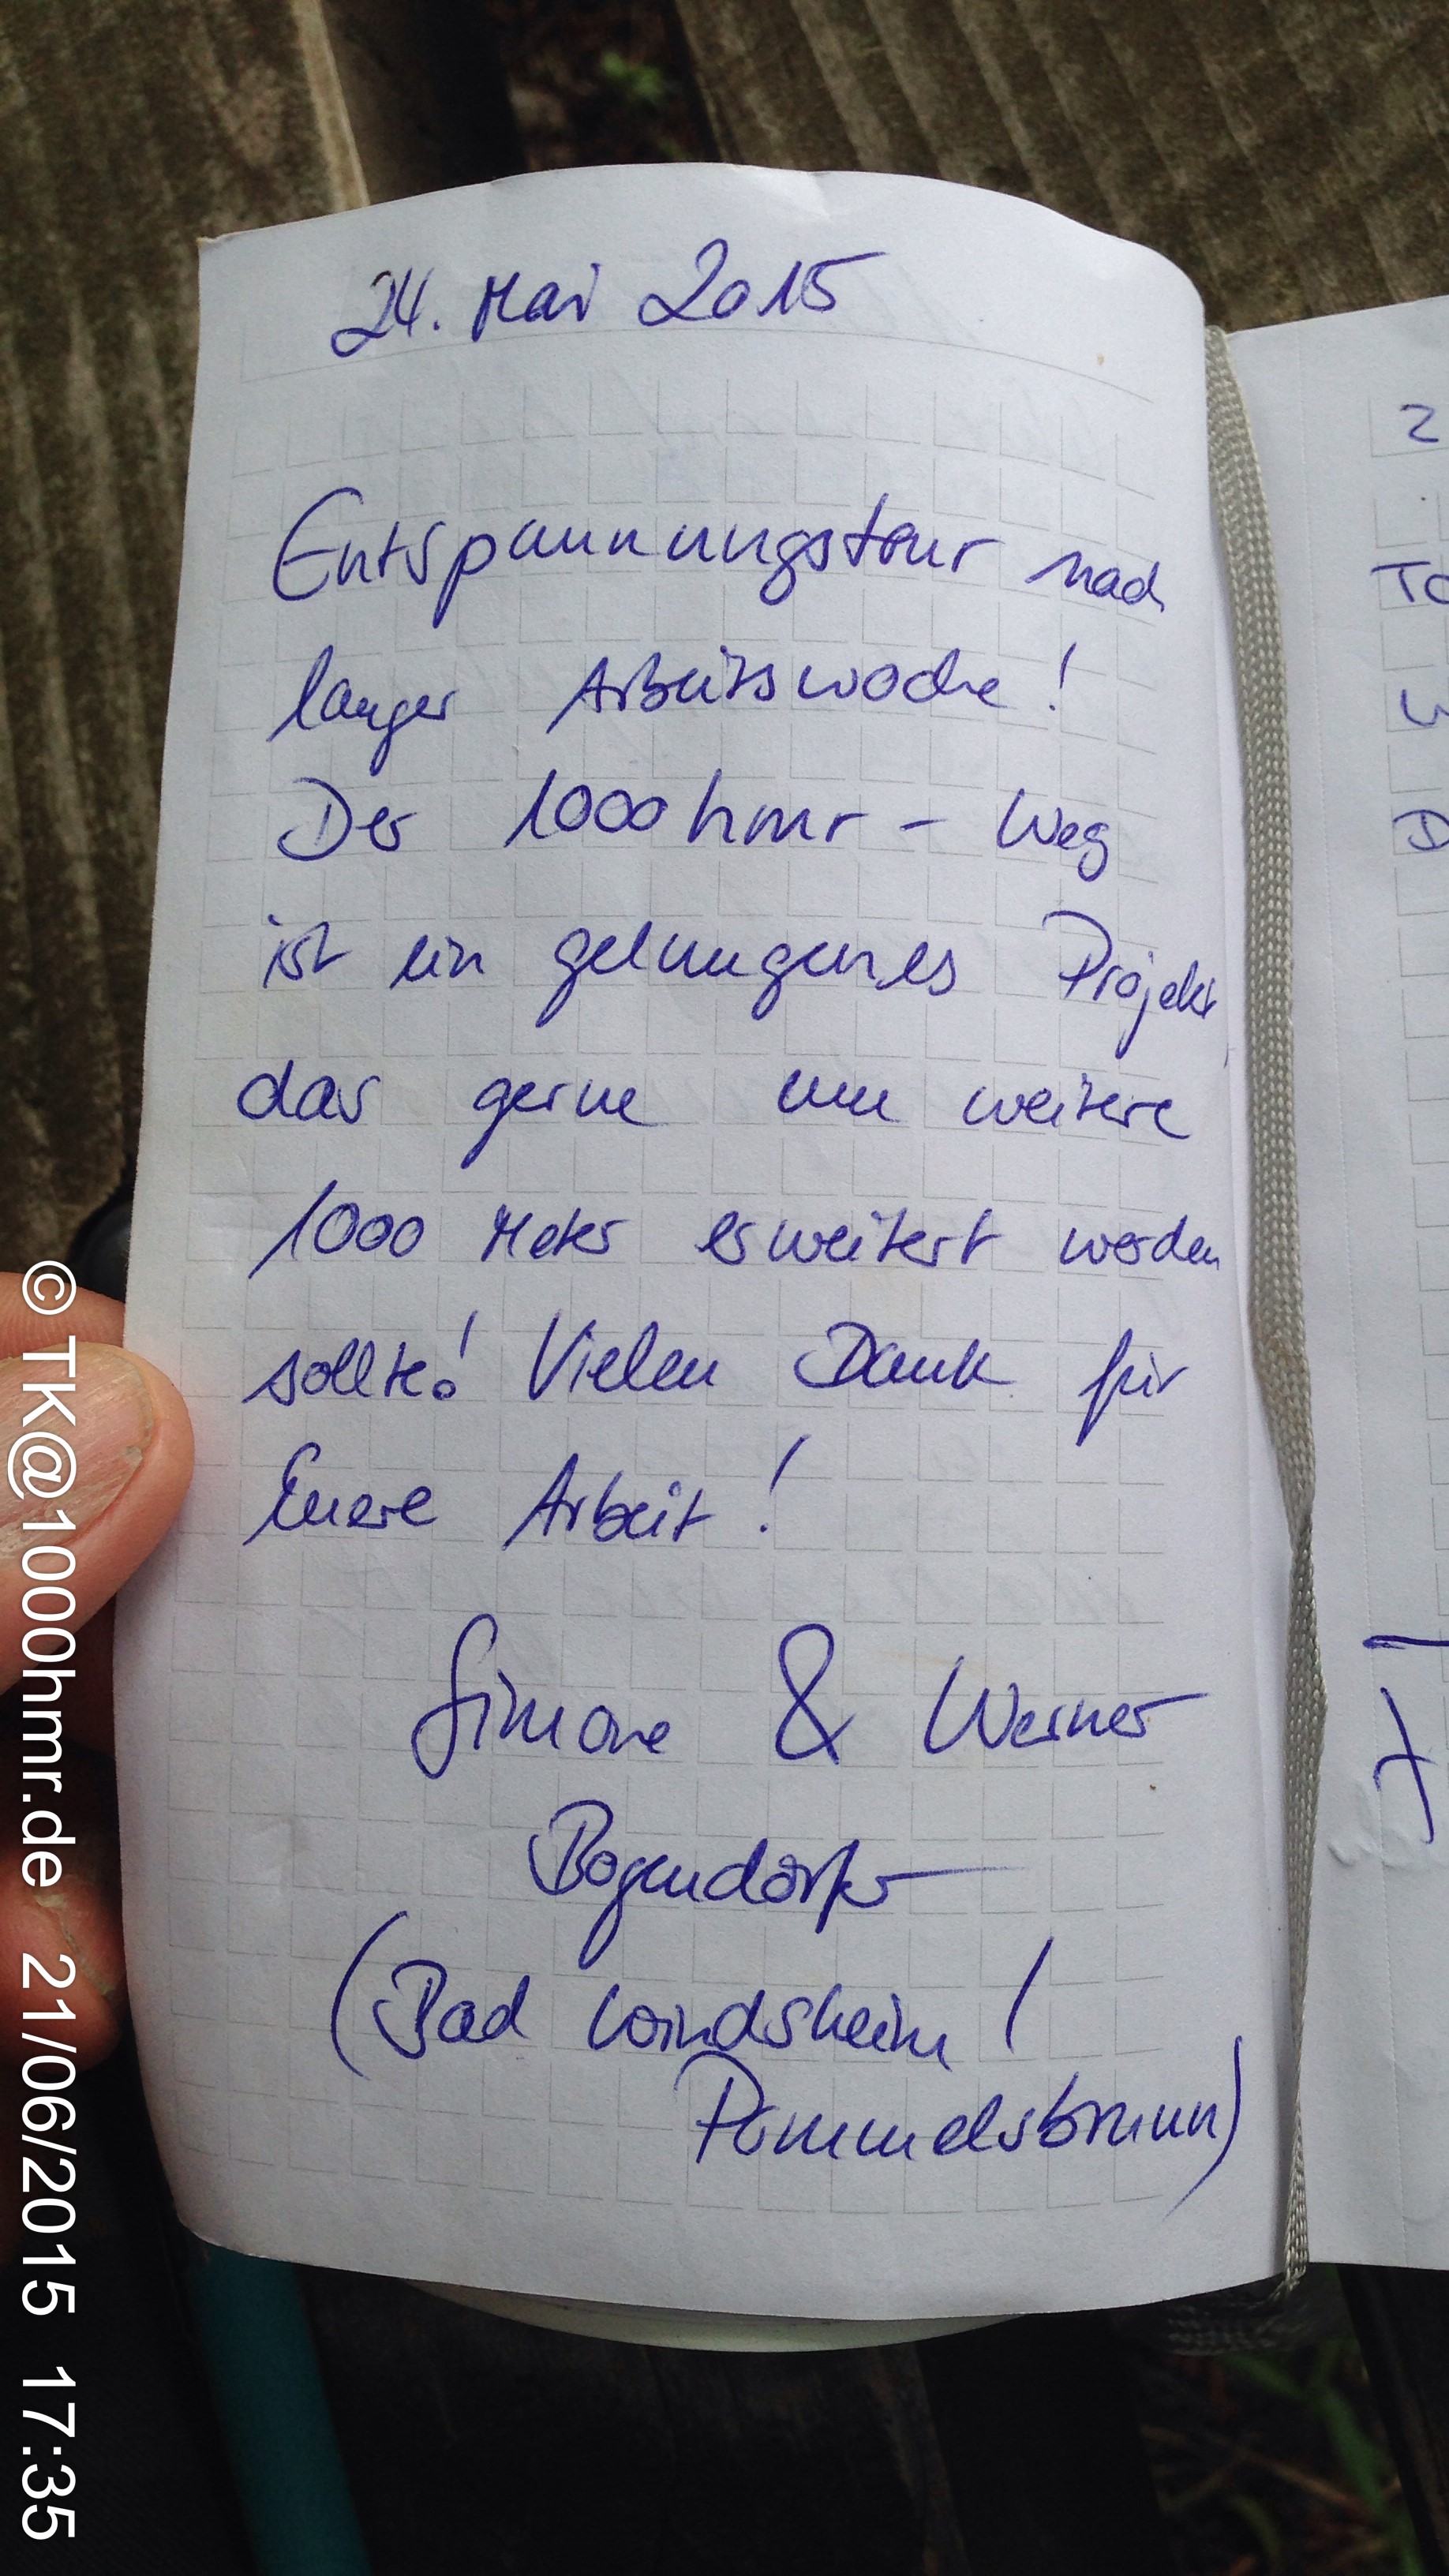 24. Mai 2015
Entspannungstour nach
langer Arbeitswoche!
Der 1000hmr - Weg
ist ein gelungenes Projekt,
das gerne um weitere
1000 Meter erweitert werden
sollte! Vielen Dank für
Euere Arbeit!
Simone & Werner
Bogendörfer
(Bad Windsheim /
Pommelsbrunn)
© TK@1000hmr.de 21/06/2015 17:35